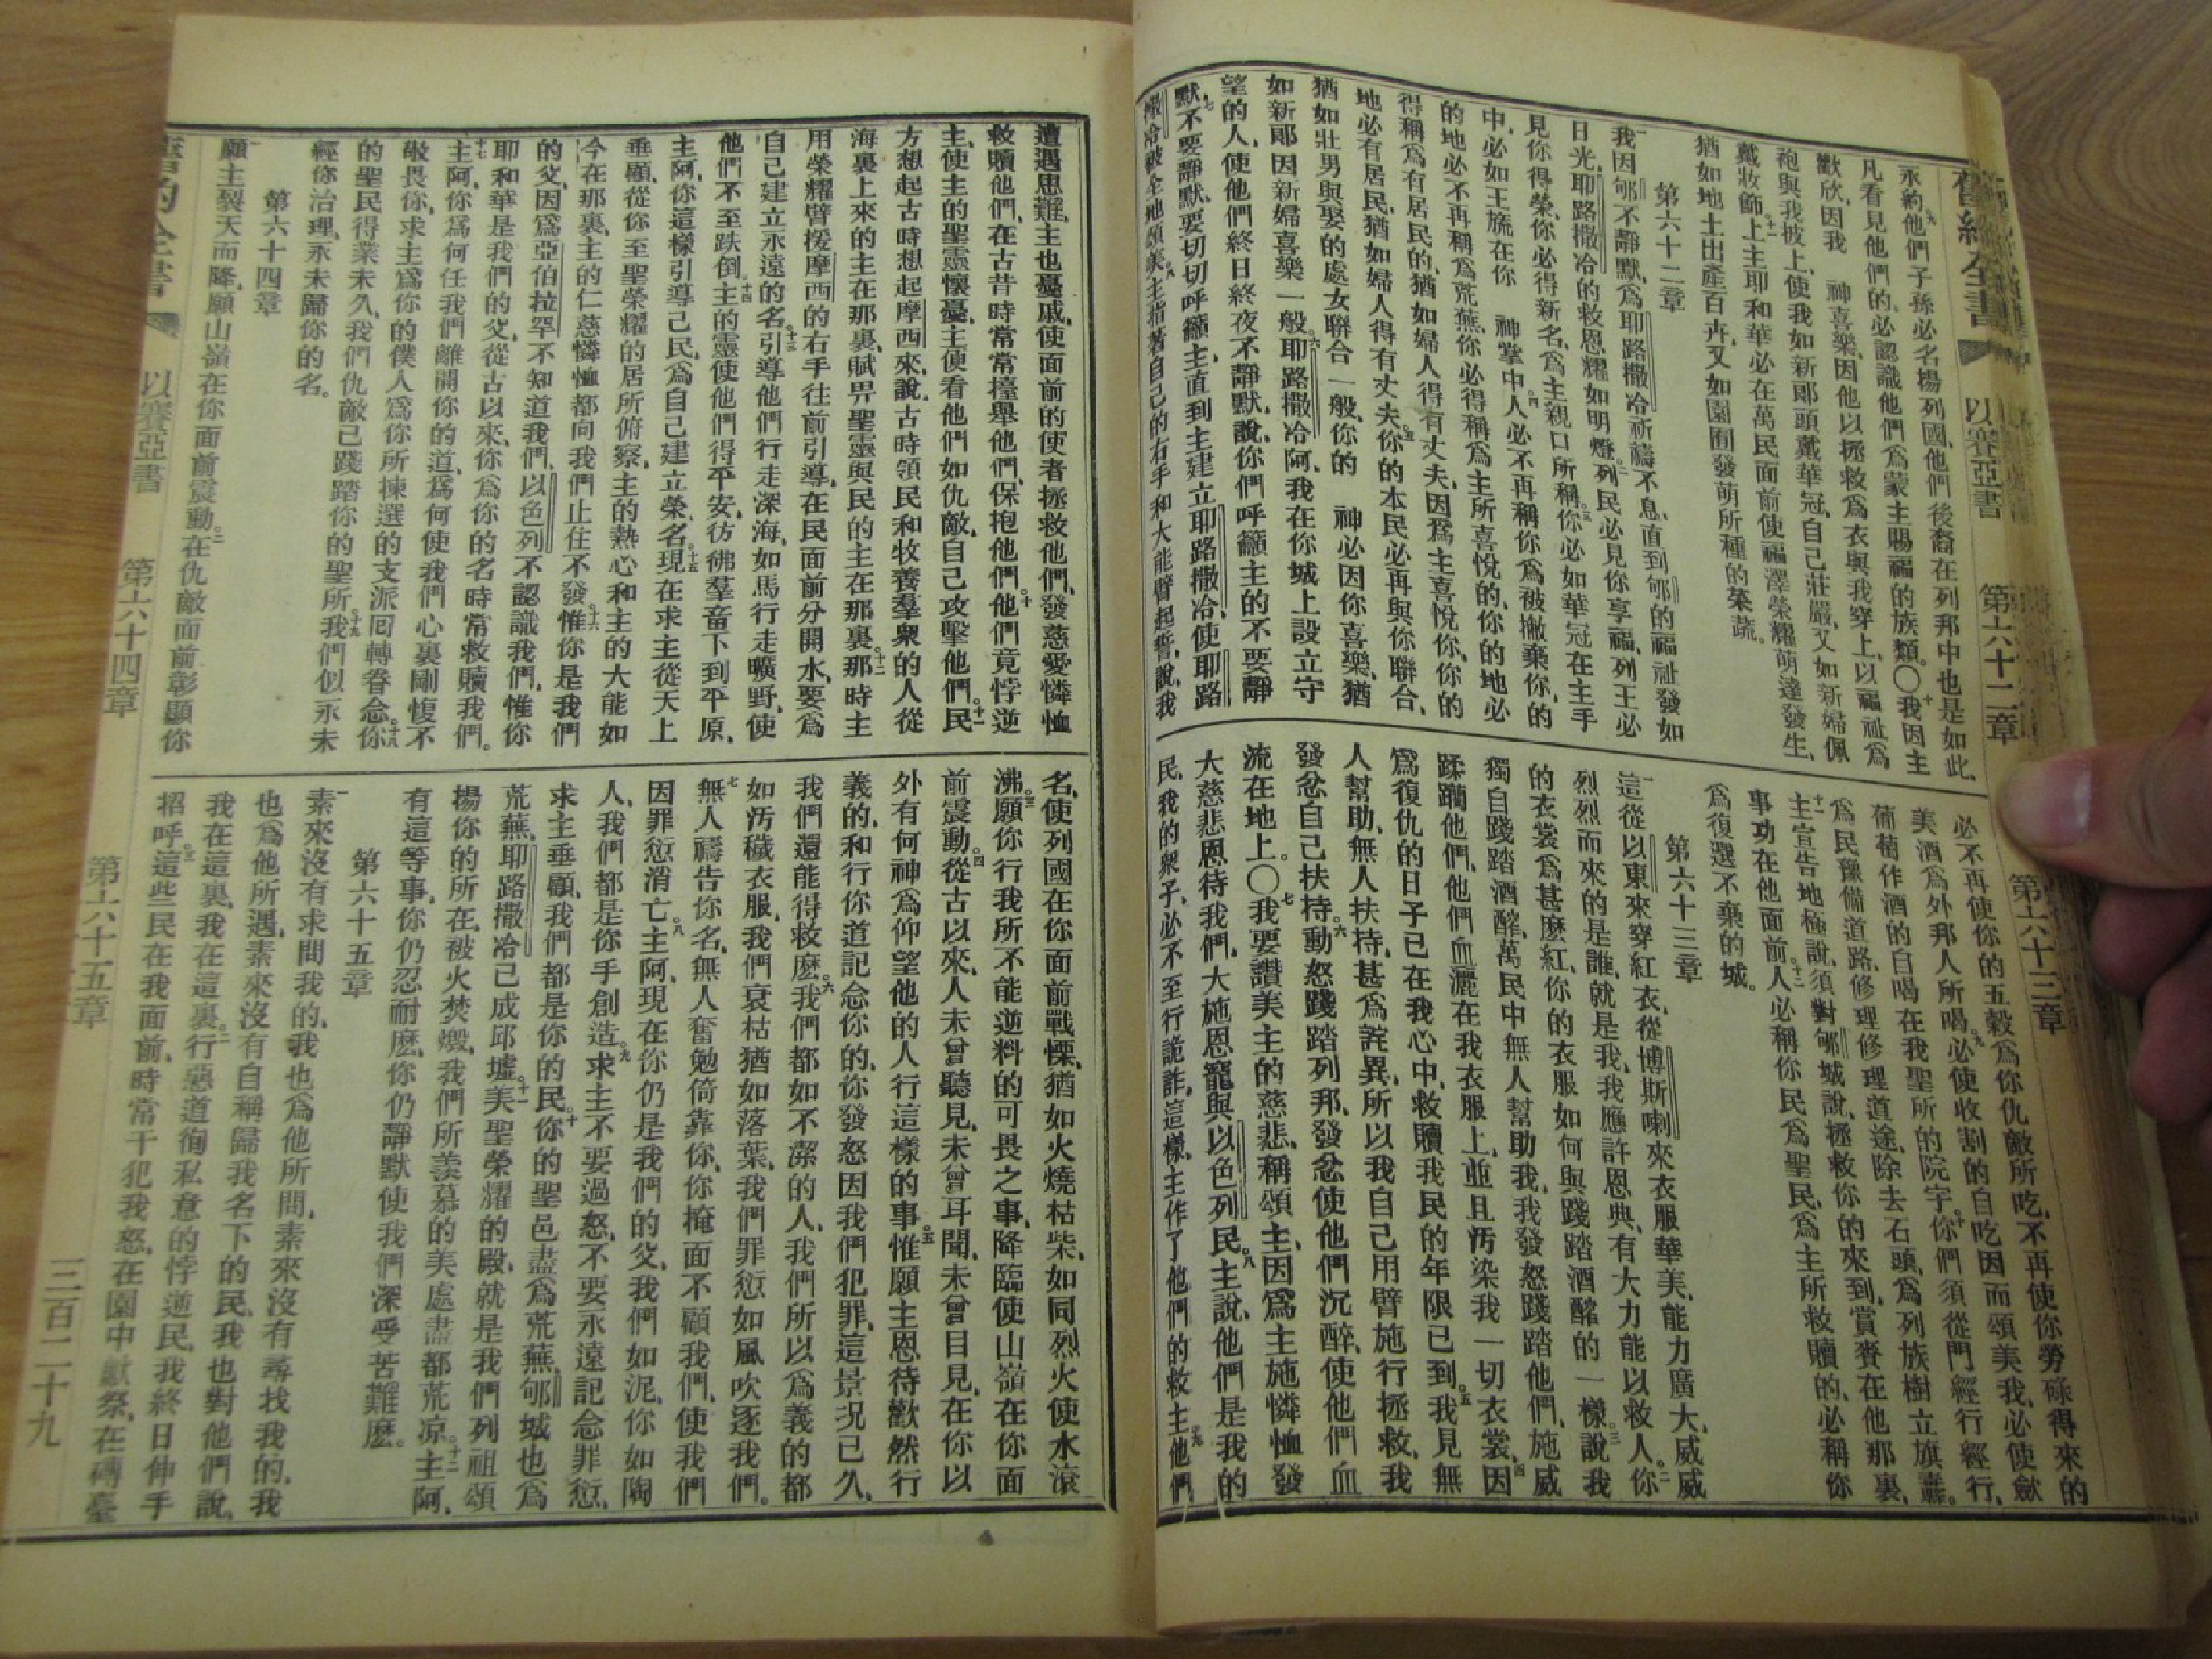 舊約全書 以賽亞書 第六十二章 第六十三章
永約、九他們子孫必名揚列國、他們後裔在列邦中也是如此、
凡看見他們的、必認識他們爲蒙主賜福的族類。〇十我因主
歡欣、因我 神喜樂、因他以拯救爲衣與我穿上、以福祉爲
袍與我披上、使我如新郎頭戴華冠、自己莊嚴、又如新婦佩
戴妝飾。十一上主耶和華必在萬民面前使福澤榮耀萌達發生、
猶如地土出產百卉、又如園囿發萌所種的菜蔬。
第六十二章
一我因郇不靜默、爲耶路撒冷祈禱不息、直到郇的福祉發如
日光、耶路撒冷的救恩耀如明燈。二列民必見你享福、列王必
見你得榮、你必得新名、爲主親口所稱。三你必如華冠在主手
中、必如王旒在你 神掌中。四人必不再稱你爲被撇棄你、的
的地必不再稱爲荒蕪、你必得稱爲主所喜悅的、你的地必
得稱爲有居民的、猶如婦人得有丈夫、因爲主喜悅你、你的
地必有居民、猶如婦人得有丈夫。五你的本民必再與你聯合、
猶如壯男與娶的處女聯合一般、你的 神必因你喜樂、猶
如新郎因新婦喜樂一般。六耶路撒冷阿、我在你城上設立守
望的人、使他們終日終夜不靜默、說、你們呼籲主的不要靜
默、七不要靜默、要切切呼籲主、直到主建立耶路撒冷、使耶路
撒冷被全地頌美。八主指著自己的右手和大能臂起誓、說、我
必不再使你的五穀爲你仇敵所吃、不再使你勞碌得來的
美酒爲外邦人所喝。九必使收割的自吃、因而頌美我、必使歛
葡萄作酒的自喝在我聖所的院宇。十你們須從門經行經行、
爲民豫備道路、修理修理道途、除去石頭、爲列族樹立旗纛。
十一主宣告地極說、須對郇城說、拯救你的來到、賞賚在他那裏、
事功在他面前。十二人必稱你民爲聖民、爲主所救贖的、必稱你
爲復選不棄的城。
第六十三章
一這從以東來穿紅衣、從博斯喇來衣服華美、能力廣大、威威
烈烈而來的是誰、就是我、我應許恩典、有大力能以救人。二你
的衣裳爲甚麽紅、你的衣服如何與踐踏酒醡的一樣。三說、我
獨自踐踏酒醡、萬民中無人幫助我、我發怒踐踏他們、施威
蹂躪他們、他們血灑在我衣服上、並且汚染我一切衣裳。四因
爲復仇的日子已在我心中、救贖我民的年限已到。五我見無
人幫助、無人扶持、甚爲詫異、所以我自己用臂施行拯救、我
發忿自己扶持。六動怒踐踏列邦、發忿使他們沉醉、使他們血
流在地上。〇七我要讚美主的慈悲、稱頌主、因爲主施憐恤發
大慈悲恩待我們、大施恩寵與以色列民。八主說、他們是我的
民、我的衆子、必不至行詭詐、這樣、主作了他們的救主。九他們
遭遇患難、主也憂戚、使面前的使者拯救他們、發慈愛憐恤
救贖他們、在古昔時常常擡舉他們、保抱他們。十他們竟悖逆
主、使主的聖靈懷憂、主便看他們如仇敵、自己攻擊他們。十一民
方想起古時、想起摩西來、說、古時領民和牧養羣衆的人從
海裏上來的主在那裏、賦畀聖靈與民的主在那裏。十二那時主
用榮耀臂援摩西的右手往前引導、在民面前分開水、要爲
自己建立永遠的名。十三引導他們行走深海、如馬行走曠野、使
他們不至跌倒。十四主的靈使他們得平安、彷彿羣畜下到平原、
主阿、你這樣引導己民、爲自己建立榮名。十五現在求主從天上
垂顧、從你至聖榮耀的居所俯察、主的熱心和主的大能如
今在那裏、主的仁慈憐恤都向我們止住不發。十六惟你是我們
的父、因爲亞伯拉罕不知道我們、以色列不認識我們、惟你
耶和華是我們的父、從古以來、你爲你的名時常救贖我們。
十七主阿、你爲何任我們離開你的道、爲何使我們心裏剛愎不
敬畏你、求主爲你的僕人爲你所揀選的支派囘轉眷念。十八你
的聖民得業未久、我們仇敵已踐踏你的聖所。十九我們似永未
經你治理、永未歸你的名。
第六十四章
一願主裂天而降、願山嶺在你面前震動。二在仇敵面前彰顯你
名、使列國在你面前戰慄、猶如火燒枯柴、如同烈火使水滾
沸。三願你行我所不能逆料的可畏之事、降臨使山嶺在你面
前震動。四從古以來、人未曾聽見、未曾耳聞、未曾目見、在你以
外有何神、爲仰望他的人行這樣的事。五惟願主恩待歡然行
義的、和行你道記念你的、你發怒因我們犯罪、這景況已久、
我們還能得救麽。六我們都如不潔的人、我們所以爲義的都
如汚穢衣服、我們衰枯猶如落葉、我們罪愆如風吹逐我們。
七無人禱告你名、無人奮勉倚靠你、你掩面不顧我們、使我們
因罪愆消亡。八主阿、現在你仍是我們的父、我們如泥、你如陶
人、我們都是你手創造。九求主不要過怒、不要永遠記念罪愆、
求主垂顧、我們都是你的民。十你的聖邑盡爲荒蕪、郇城也爲
荒蕪、耶路撒冷已成邱墟。十一美聖榮耀的殿、就是我們列祖頌
揚你的所在、被火焚燬、我們所羨慕的美處盡都荒凉。十二主阿、
有這等事、你仍忍耐麽、你仍靜默使我們深受苦難麽。
第六十五章
一素來沒有求問我的、我也爲他所問、素來沒有尋找我的、我
也爲他所遇、素來沒有自稱歸我名下的民、我也對他們說、
我在這裏、我在這裏。二行惡道徇私意的悖逆民、我終日伸手
招呼。三這些民在我面前、時常干犯我怒、在園中獻祭、在磚臺
以賽亞書 第六十四章 第六十五章 三百二十九